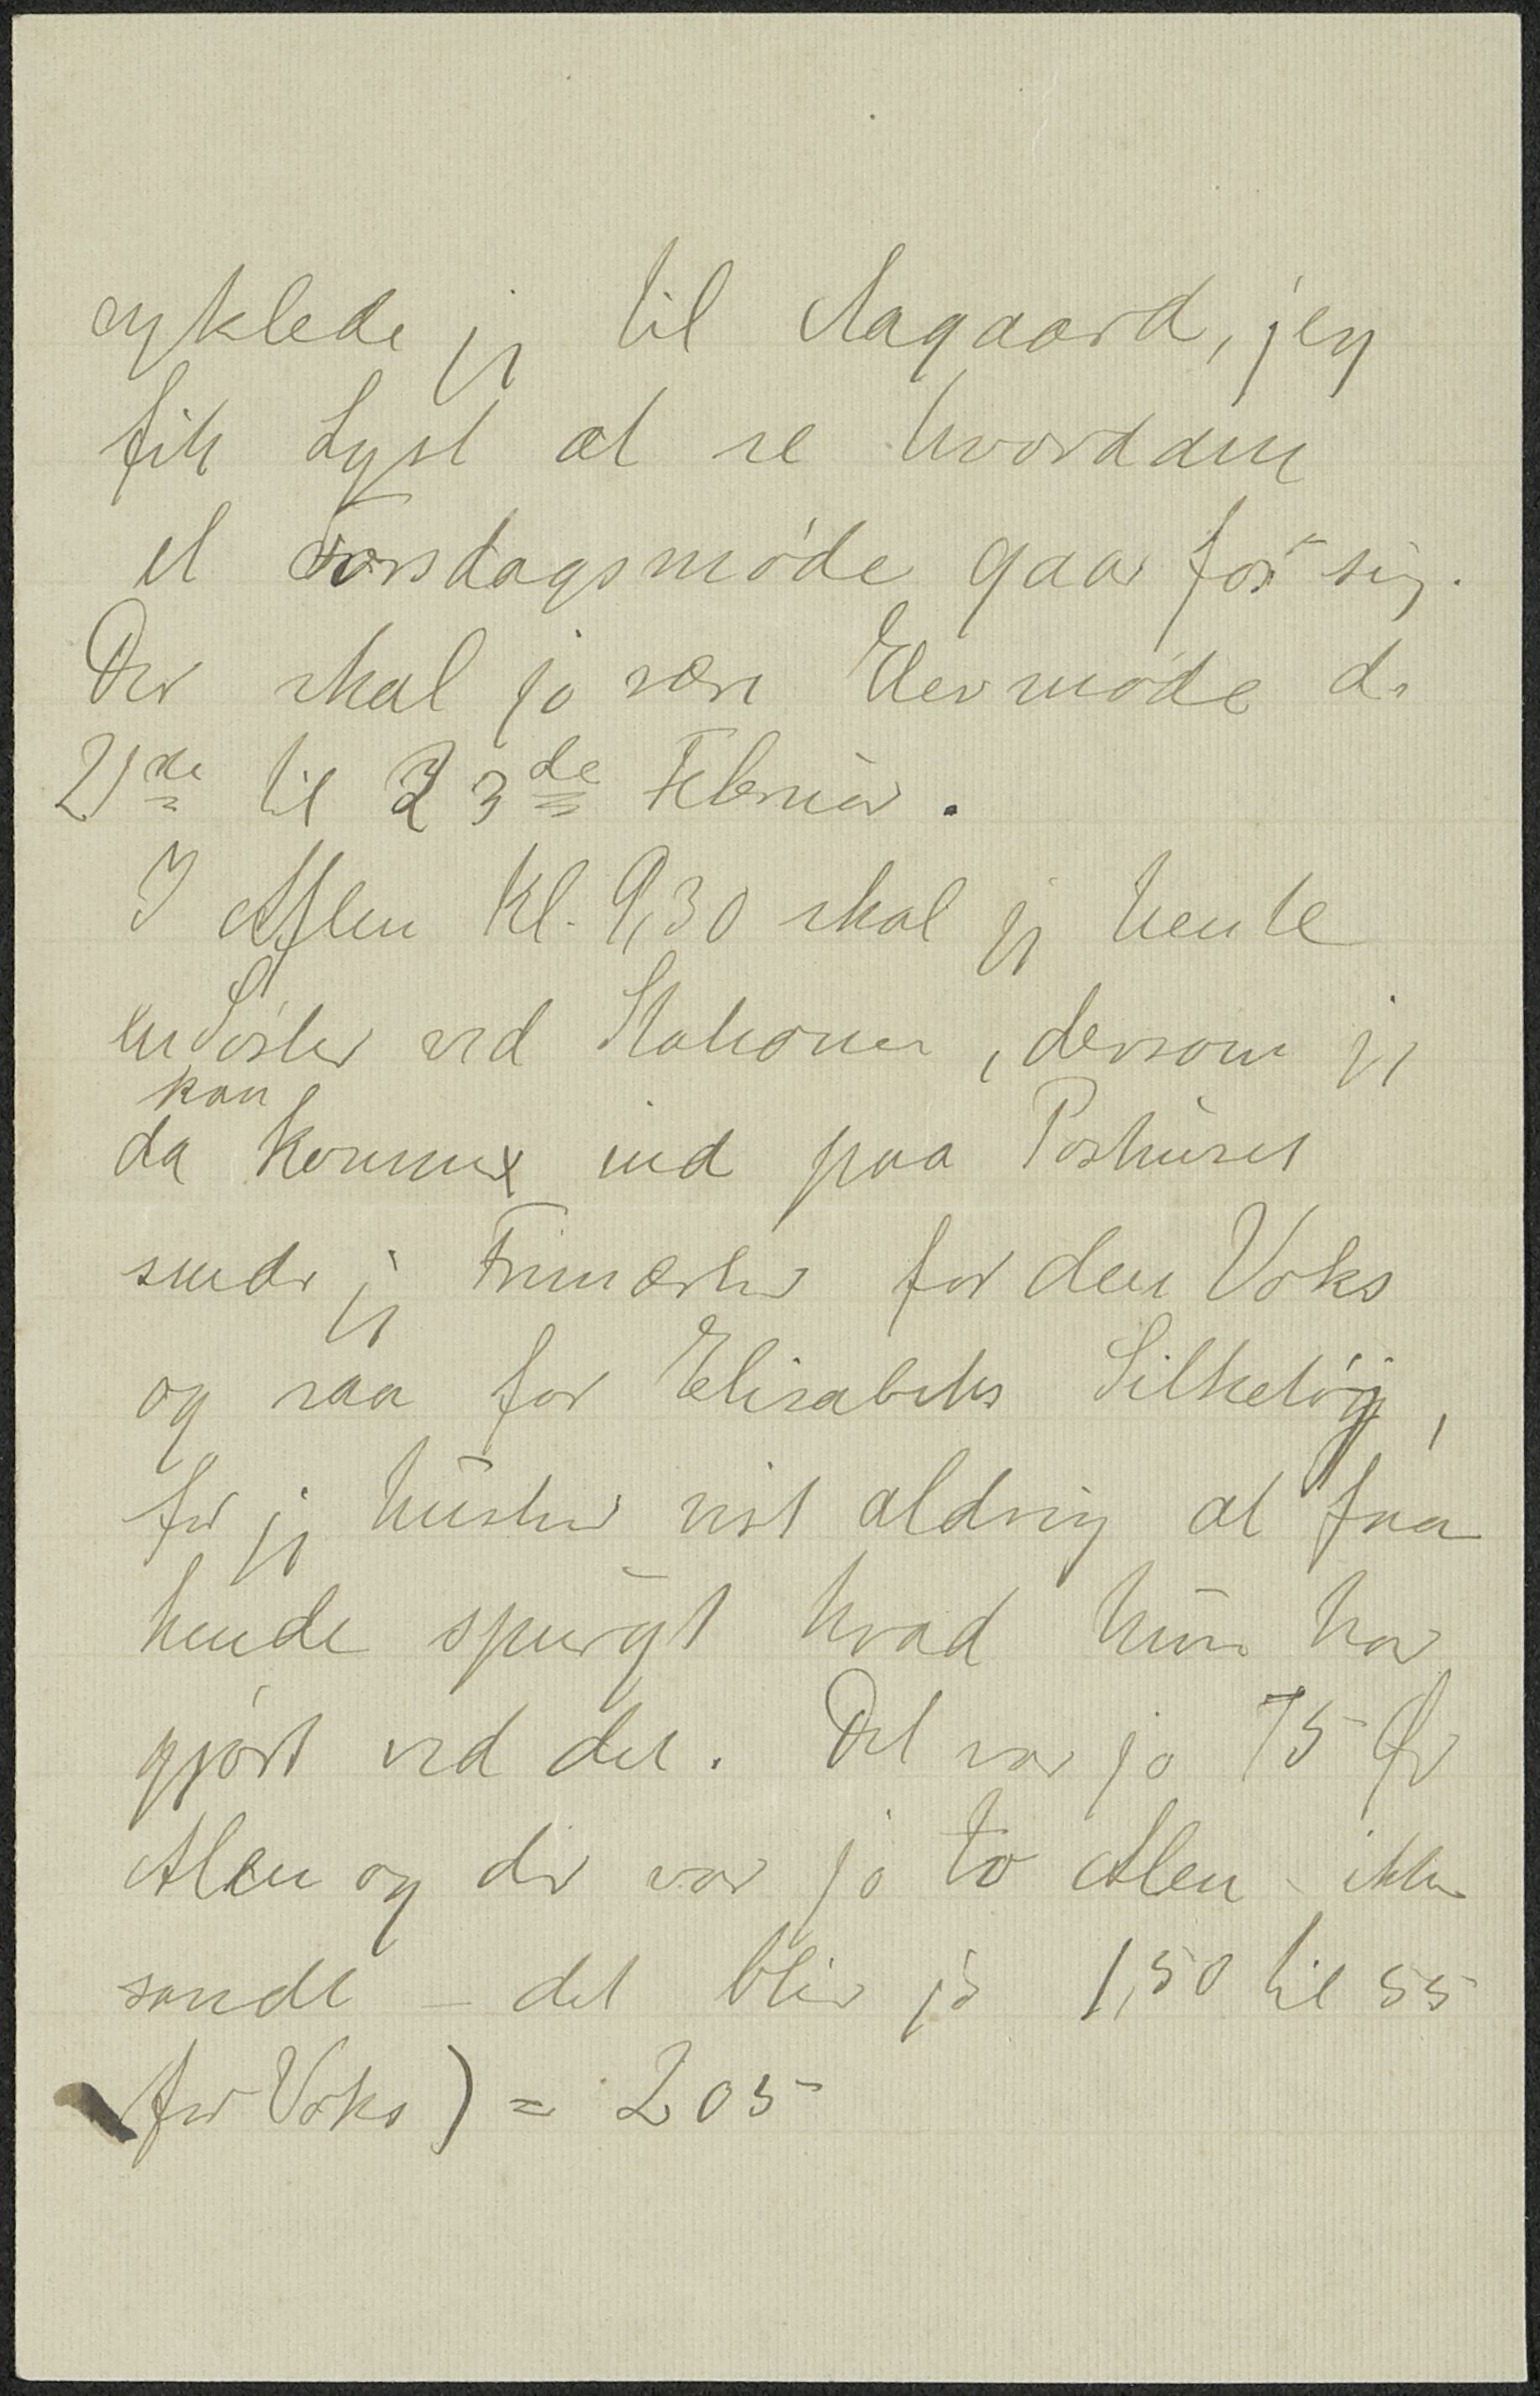 cyklede jeg til Aagaard, jeg
fik Lyst at se hvordan
et Torsdagsmøde gaar for sig.
Der skal jo være Elevmøde d.
21de til 23de Februar.
I Aften Kl. 9,30 skal jeg hente
en Søster ved Stationen, dersom jeg
kan
da komme ind paa Posthuset
sender jeg Frimærker for den Voks
og saa for Elisabeths Silketøj,
for jeg husker vist aldrig at faa
hende spurgt hvad hun har
gjort ved det. Det var jo 75 Ør
Alen og der var jo to Alen - ikke
sandt - det bliver jo 1,50 til 55
(for Voks) = 205